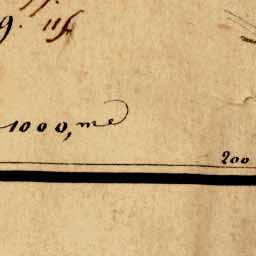 9. 115
1000,me
200